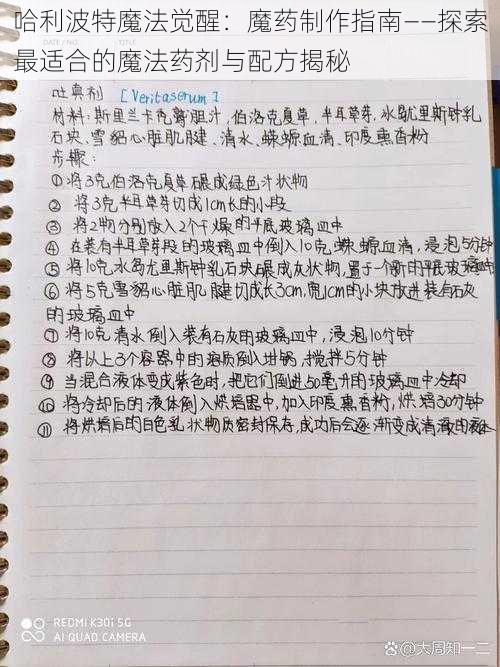 哈利波特魔法觉醒：魔药制作指南——探索
最适合的魔法药剂与配方揭秘
吐真剂 [Veritaserum]
材料：斯里兰卡 胆汁，伯洛克夏草，半耳草芽，水岛尤里斯钟乳
石块，雪貂心脏肌腱，清水，蝾螈血清，印度熏香粉
步骤：
①将3克伯洛克夏草碾成绿色汁状物
② 将3克半耳草芽切成1cm长的小段
③ 将2物分别放入2个干燥的平底玻璃皿中
④ 在装有半耳草芽段的玻璃皿中倒入10克蝾螈血清，浸泡5分钟
⑤ 将10克水岛尤里斯钟乳石块碾成灰状物，置于一个新的平底玻璃皿中
⑥ 将5克雪貂心脏肌腱切成长3cm，宽1cm的小块放进装有石灰
的玻璃皿中
⑦ 将10克清水倒入装有石灰的玻璃皿中，浸泡10分钟
⑧ 将以上3个容器中的溶质倒入坩锅，搅拌5分钟
⑨ 当混合液体变成紫色时，把它们倒进50毫升的玻璃皿中冷却
⑩ 将冷却后的液体倒入烘焙器中，加入印度熏香粉，烘焙30分钟
⑪ 将烘焙后的白色乳状物质密封保存，成功后会逐渐变成清澈的液体
REDMI K30i 5G
AI QUAD CAMERA
@大周知一二